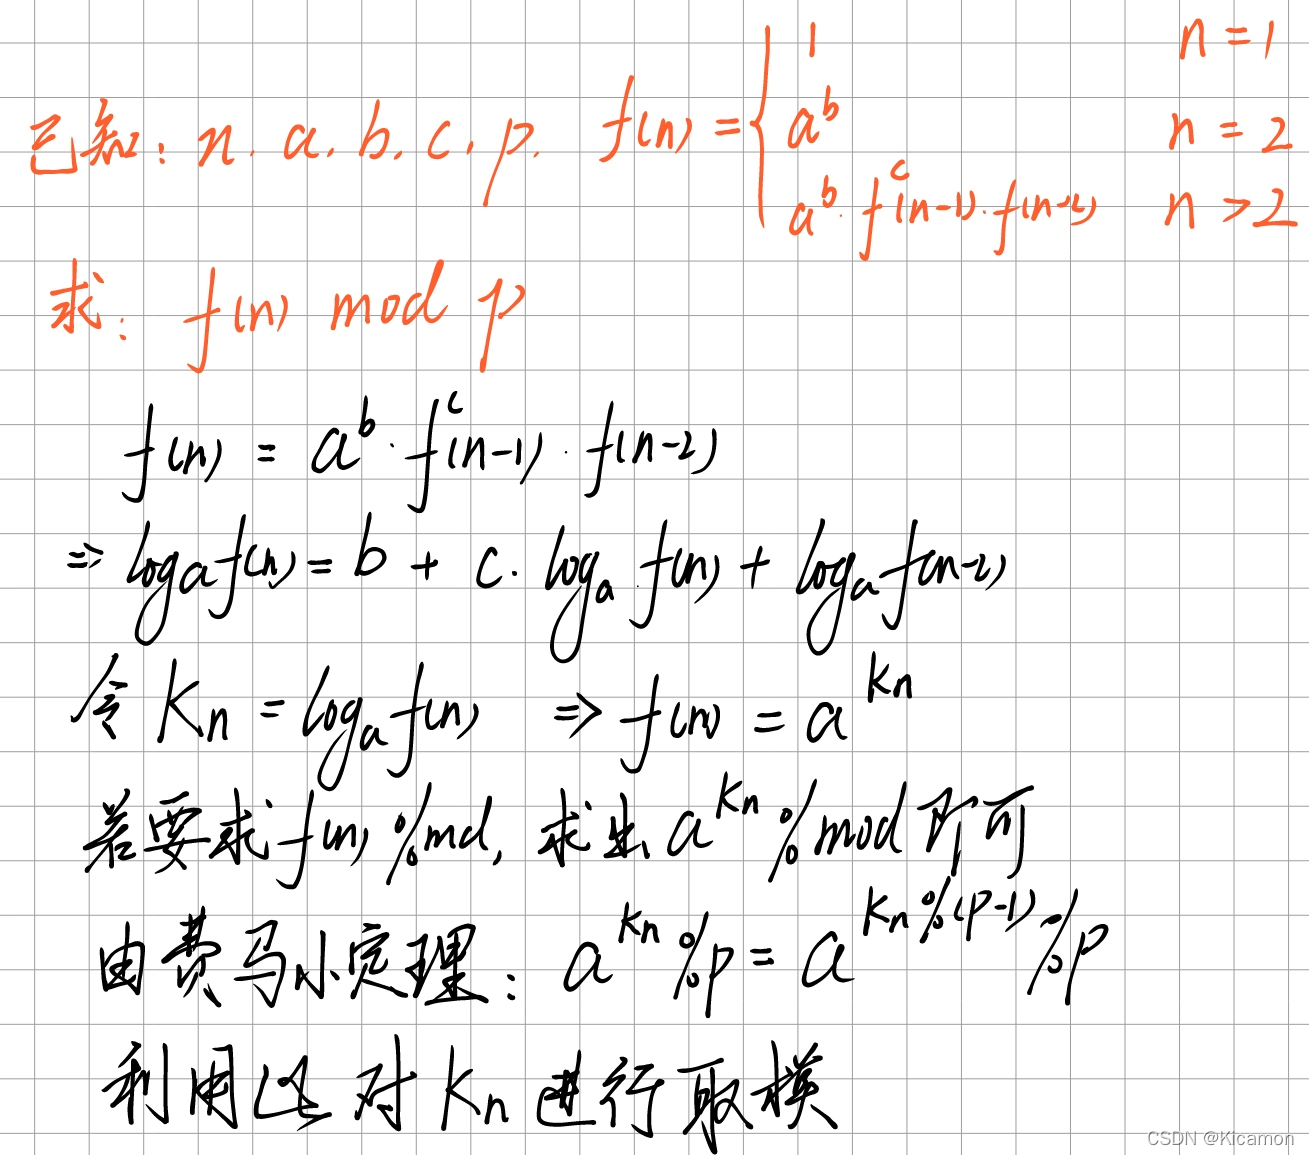 已知: n. a. b. c. p. f(n) = { 1 n = 1
a^b n = 2
a^b · f^c(n-1) · f(n-2) n > 2
求: f(n) mod p
f(n) = a^b · f^c(n-1) · f(n-2)
⇒ log_a f(n) = b + c · log_a f(n) + log_a f(n-2)
令 K_n = log_a f(n) ⇒ f(n) = a^{K_n}
若要求 f(n) % md, 求出 a^{K_n} % mod 即可
由费马小定理: a^{K_n} % p = a^{K_n % (p-1)} % p
利用这 对 K_n 进行取模
CSDN @Kicamon